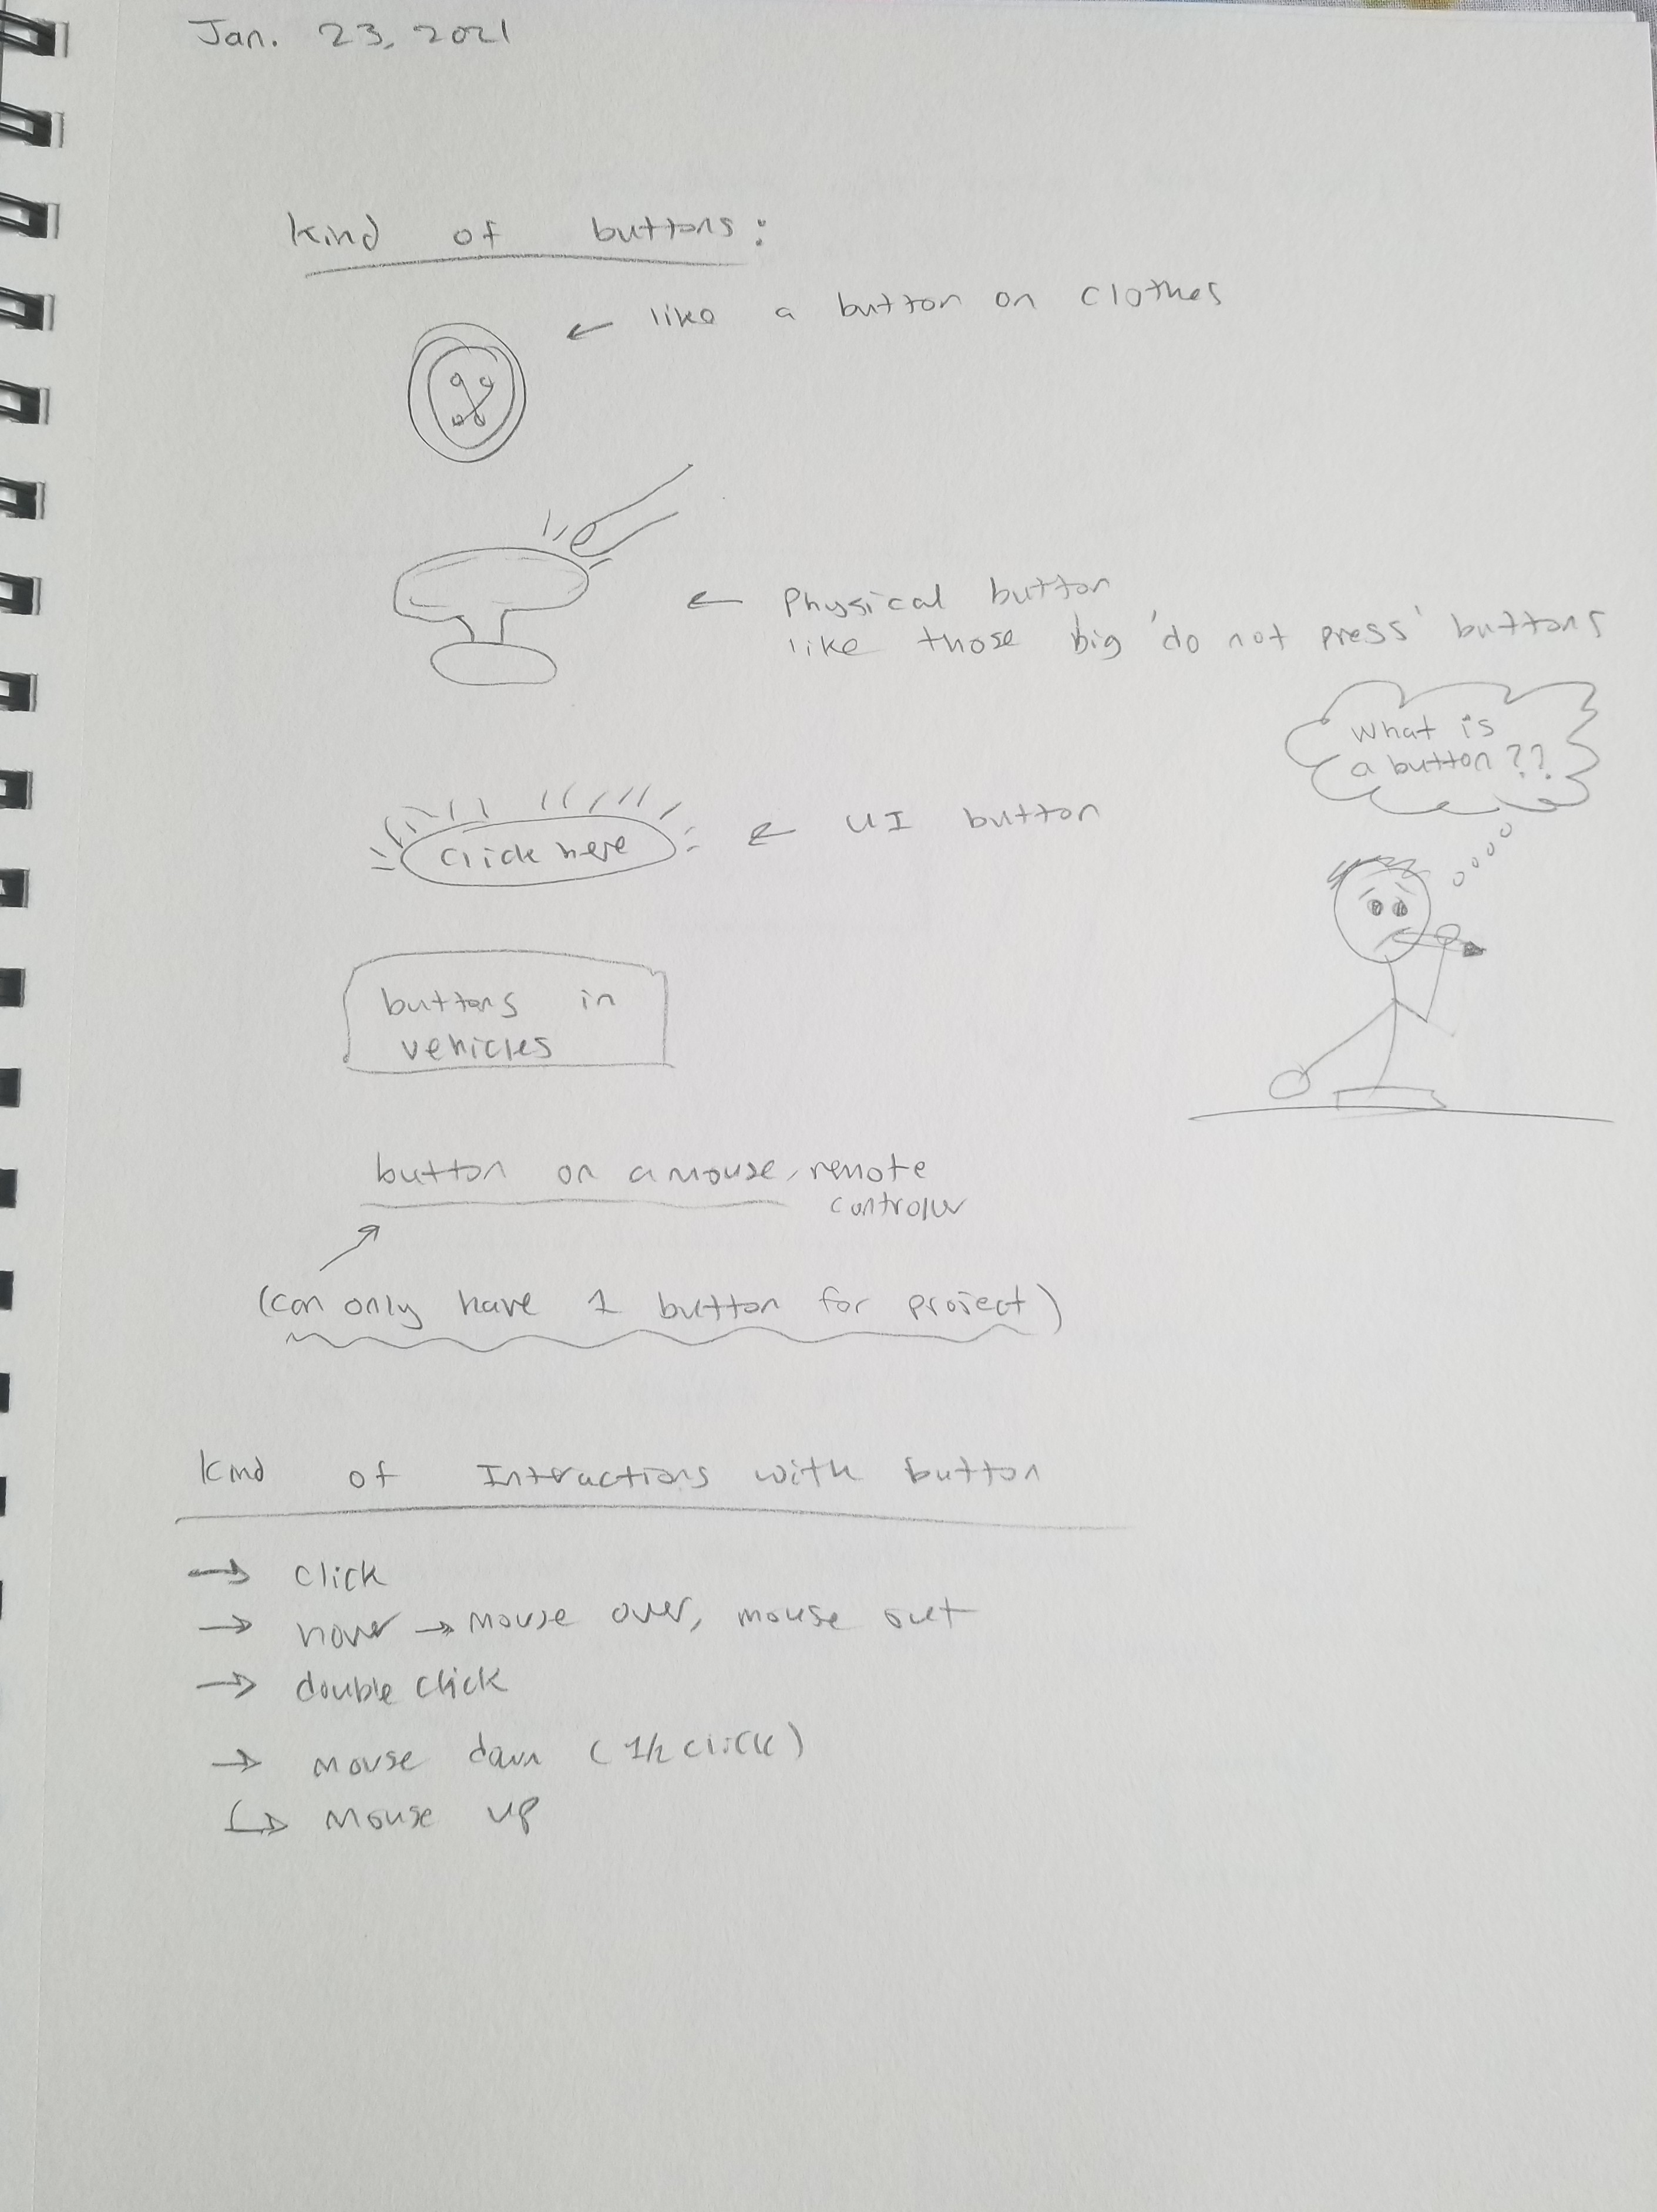 Jan. 23, 2021
kind of buttons:
← like a button on clothes
← Physical button
like those big 'do not press' buttons
What is
a button??
click here
← UI button
buttons in
vehicles
button on a mouse, remote
controller
(can only have 1 button for project)
kind of Interactions with button
→ click
→ hover → mouse over, mouse out
→ double click
→ mouse down (1/2 click)
↳ mouse up